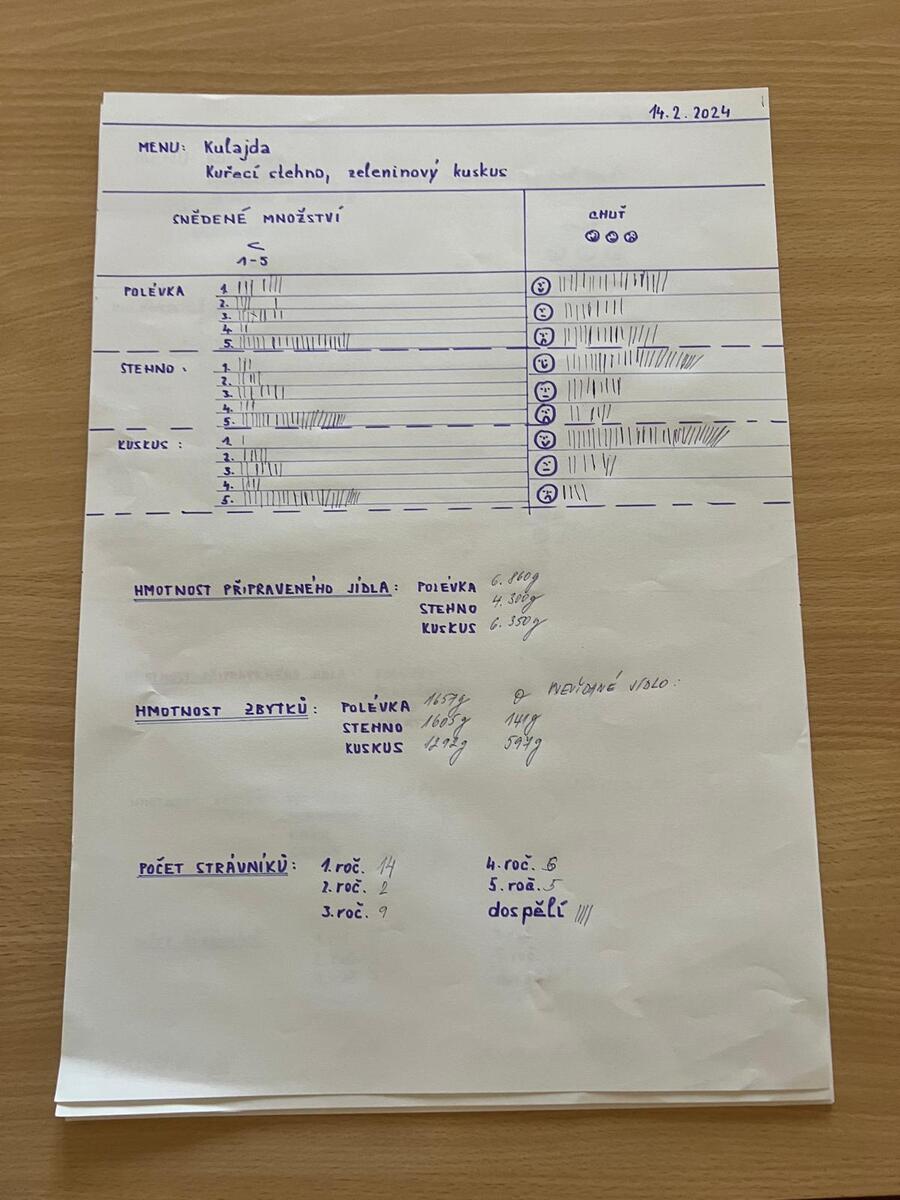 14.2.2024
MENU: Kulajda
Kuřecí stehno, zeleninový kuskus
SNĚDENÉ MNOŽSTVÍ
<
1-5
CHUŤ
POLÉVKA
1.
2.
3.
4.
5.
STEHNO.
1.
2.
3.
4.
5.
KUSKUS:
1.
2.
3.
4.
5.
HMOTNOST PŘIPRAVENÉHO JÍDLA: POLÉVKA 6.860g
STEHNO 4.300g
KUSKUS 6.350g
HMOTNOST ZBYTKŮ: POLÉVKA 1657g JÍDLO:
STEHNO 1605g 141g
KUSKUS 1292g 597g
POČET STRÁVNÍKŮ: 1.roč. 14 4.roč. 6
2.roč. 2 5.roč. 5
3.roč. 9 dospělí ||||